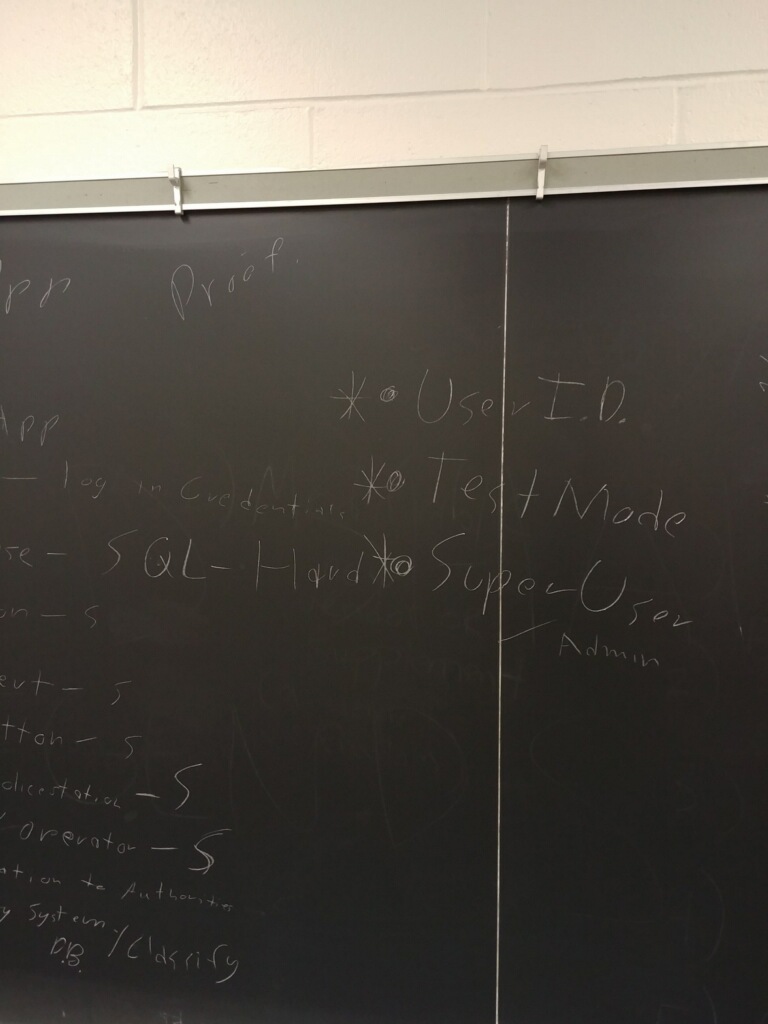 App Prof.
App
- log in Credentials
se - SQL - Hard
on - S
eut - S
tton - S
- S
operator - S
ation to Authorities
y System /Classify
D.B.
* User I.D.
* Test Mode
* Super User
- Admin